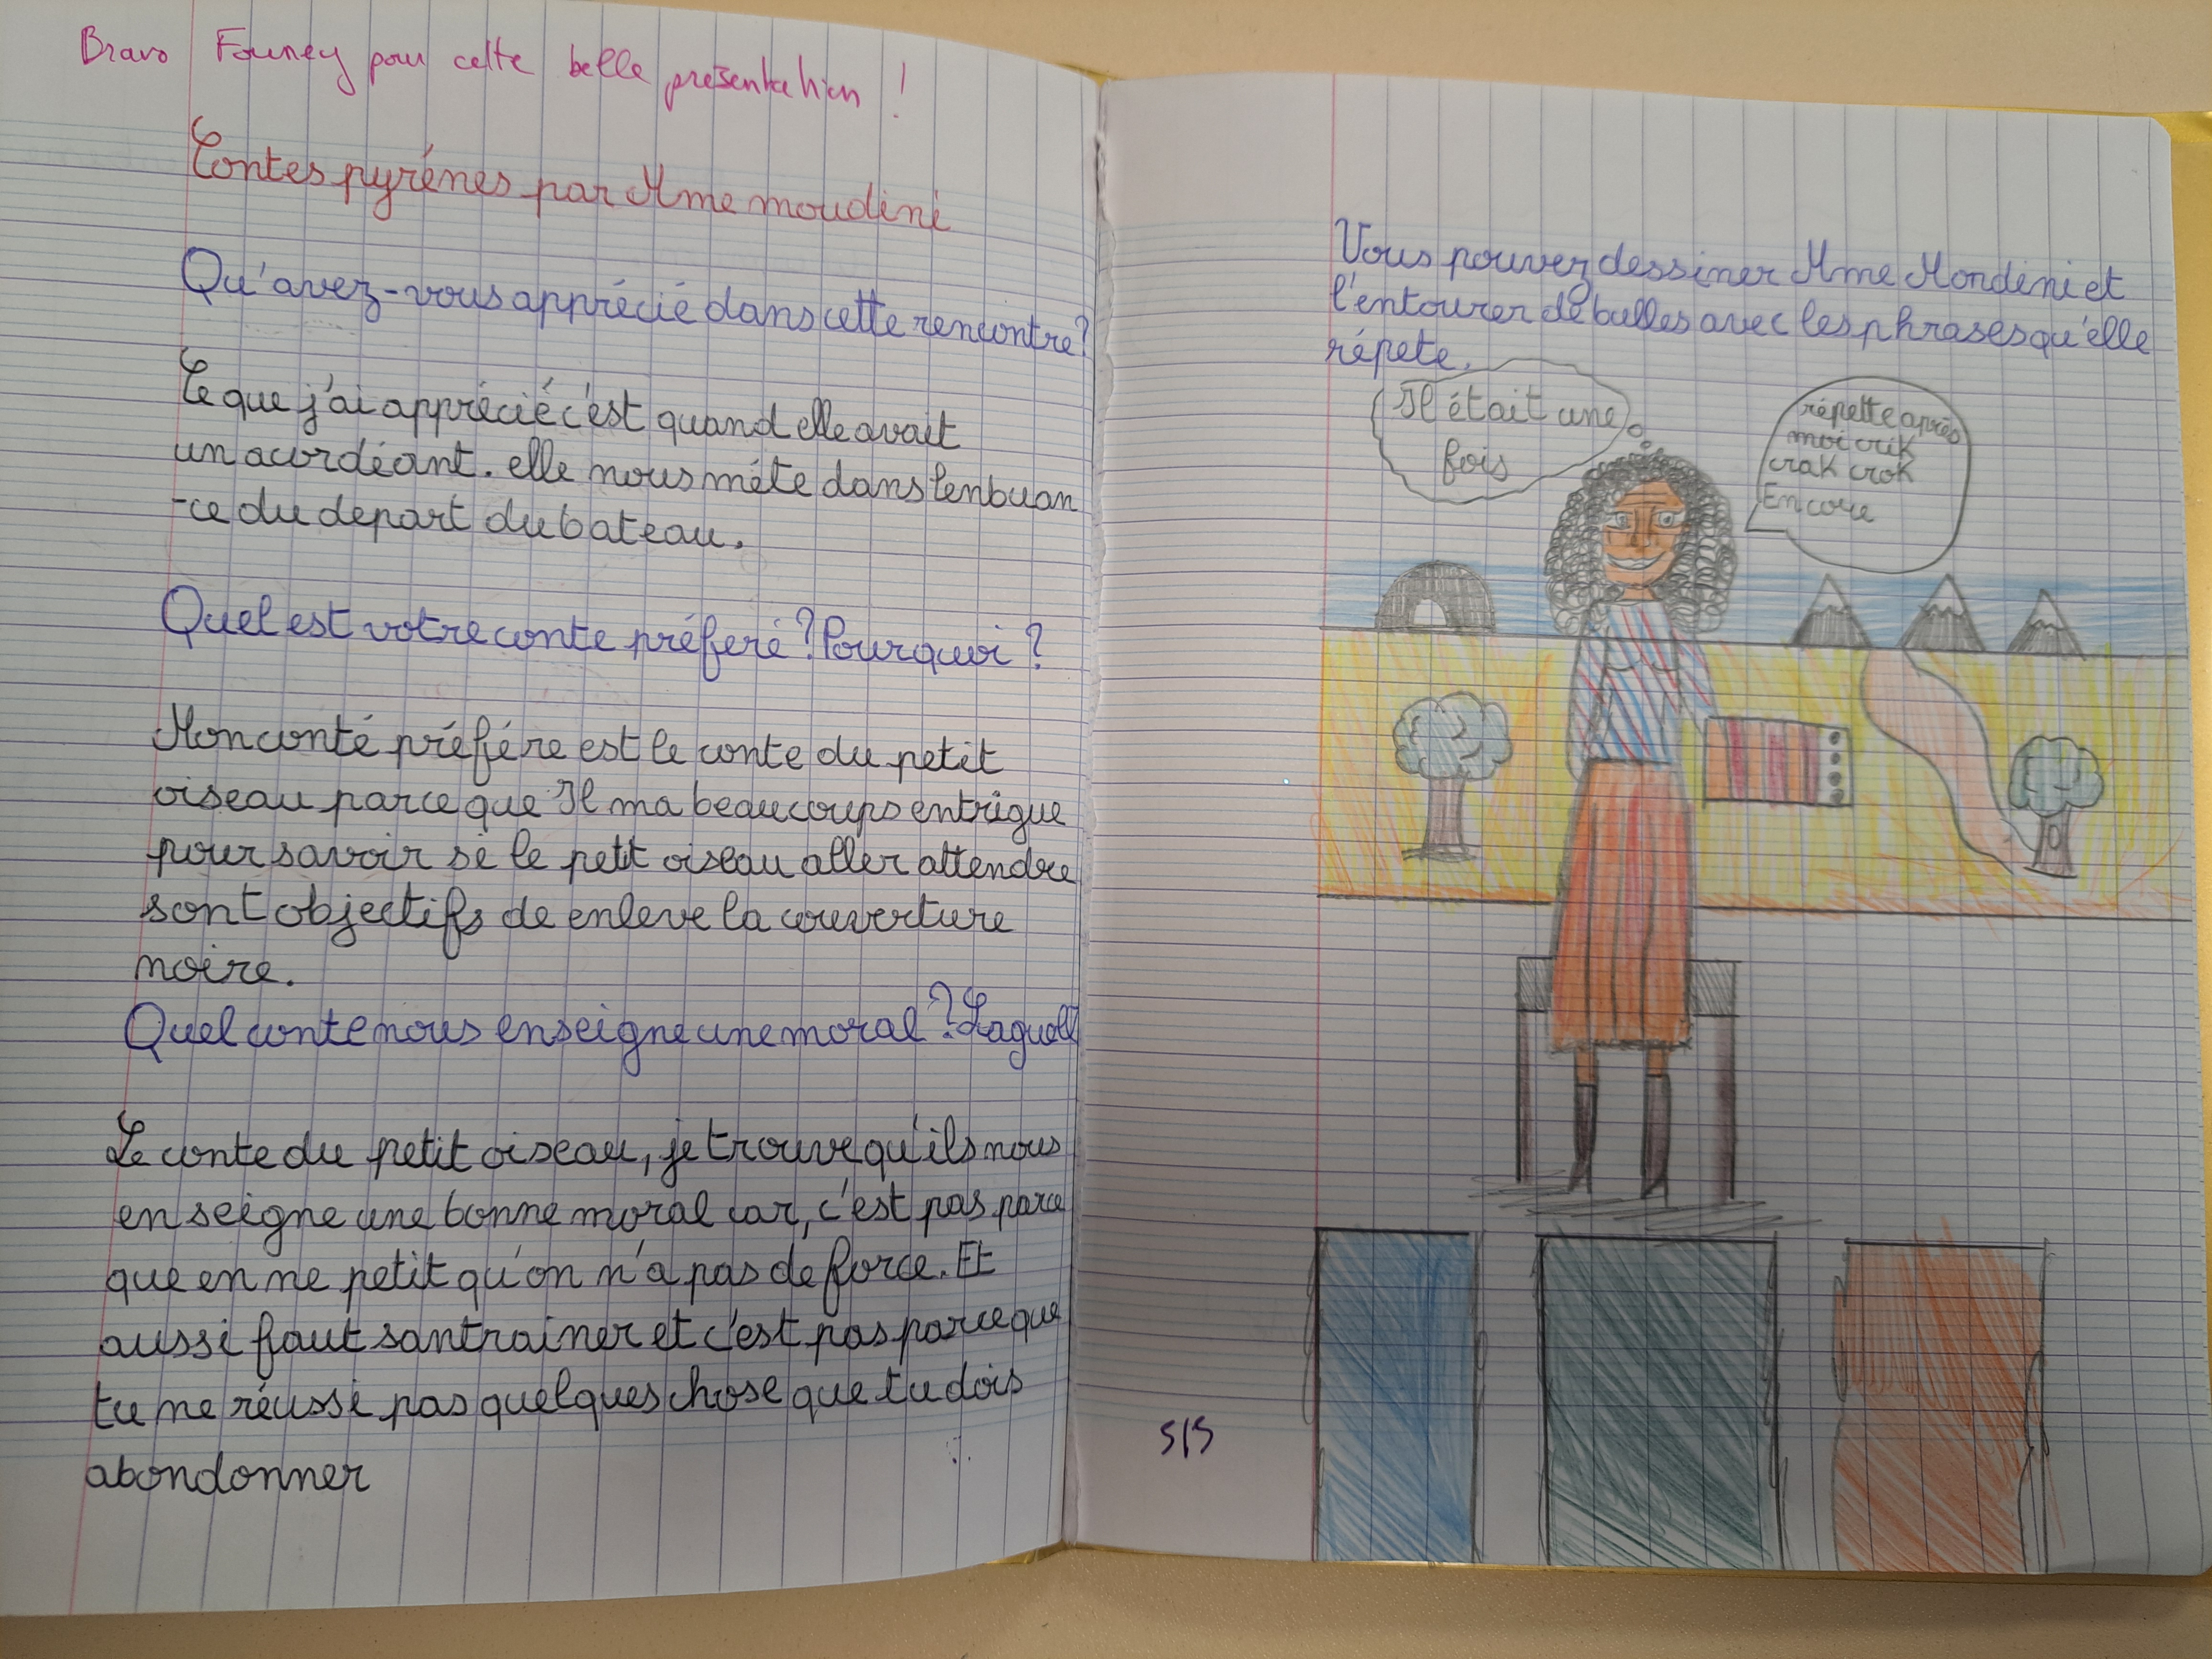 Bravo Founey pour cette belle présentation !
Contes pyrénés par Mme moudini
Qu'avez-vous apprécié dans cette rencontre?
Ce que j'ai apprécié c'est quand elle avait
un acordéant. elle nous méte dans l'enbuan
-ce du depart du bateau.
Quel est votre conte préferé ? Pourquoi ?
Mon conté préfére est le conte du petit
oiseau parce que Il ma beaucoups entrigue
pour savoir si le petit oiseau aller attendre
sont objectifs de enleve la couverture
noire.
Quel conte nous enseigne une moral ? Laquell
Le conte du petit oiseau, je trouve qu'ils nous
enseigne une bonne moral car, c'est pas parce
que en ne petit qu'on n'a pas de force. Et
aussi faut santrainer et c'est pas parce que
tu ne réussi pas quelques chose que tu dois
abondonner
Vous pouvez dessiner Mme Mondini et
l'entourer de bulles avec les phrases qu'elle
répete.
Il était une
fois
répette après
moi crik
crak crok
Encore
5/5